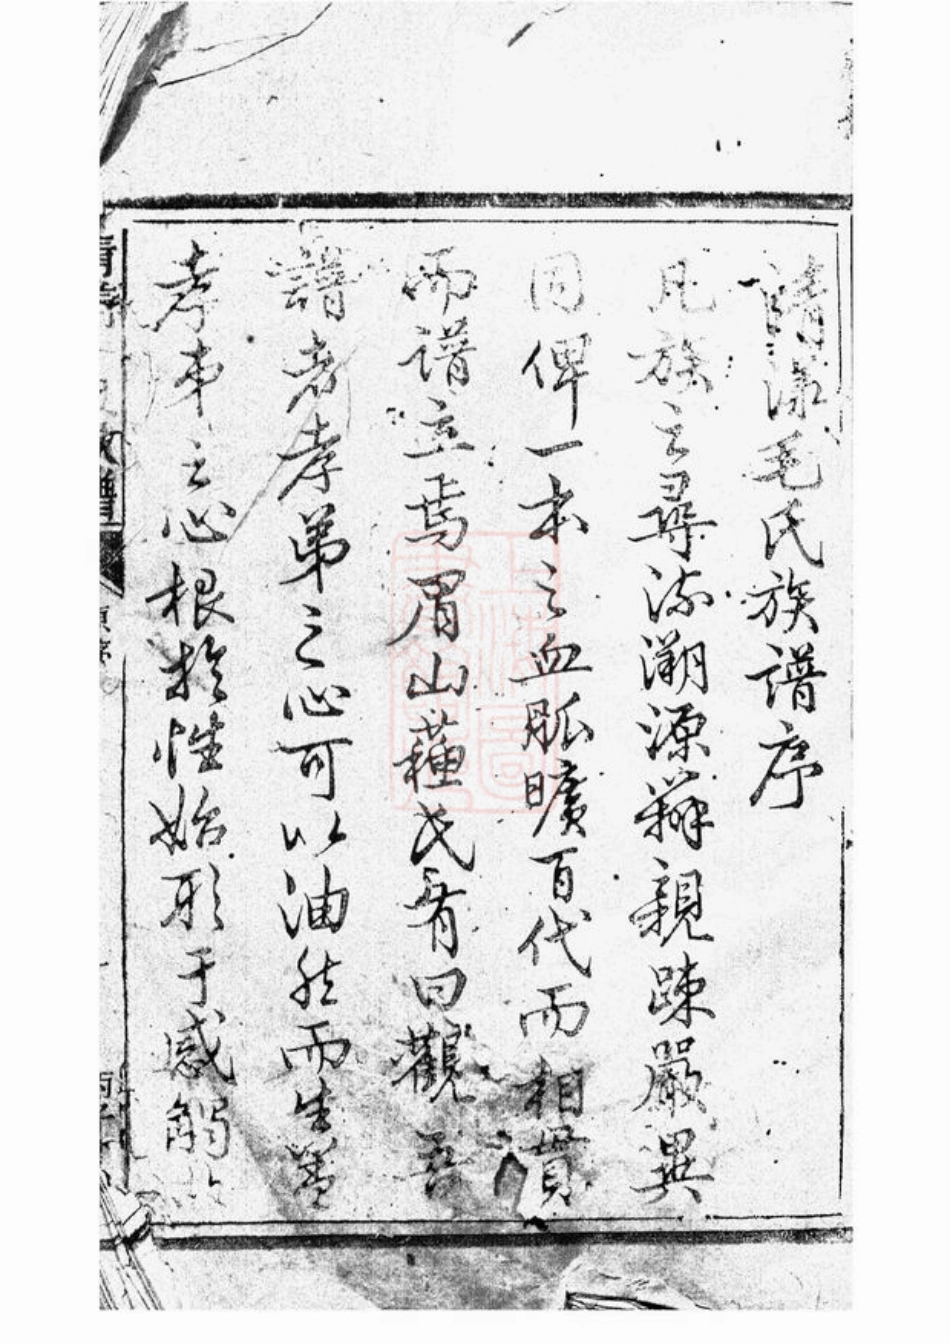 清漾毛氏族譜序
凡族之尋流溯源辯親疎嚴異
同俾一本之血脈曠百代而相貫
而譜立焉眉山蘓氏有曰觀吾
譜者孝弟之心可以油然而生蓋
孝弟之心根於性始形于感觸故